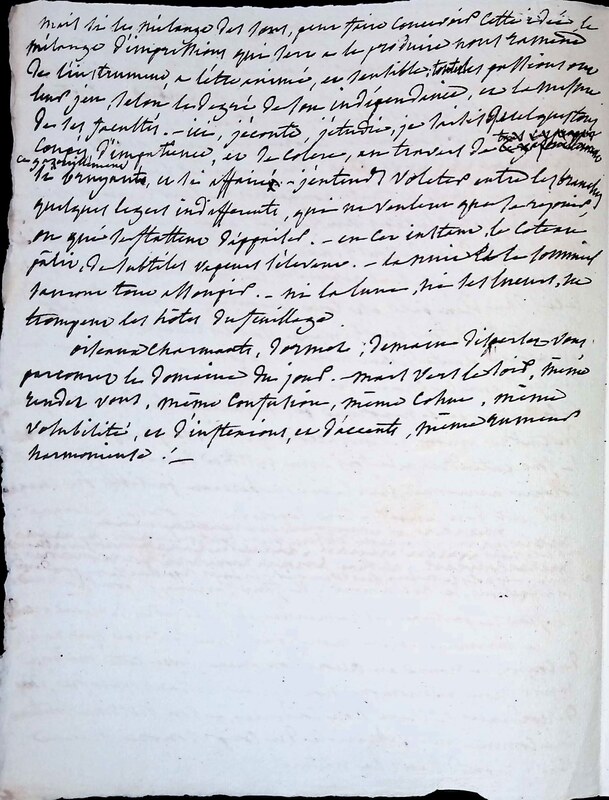 mais si le mélange des sons, peut faire concevoir cette idée le
mélange d'impressions qui sert a le produire nous ramène
de l'instrument a l'etre animé, et sensible, toutes les passions ont
leur jeu, selon le degré de son indépendance, et la mesure
de ses facultés. - ici, j'écoute, j'étudie, je saisis quelques tons
coups d'impatience, et de colere, au travers de
ce gazouillement
si bruyant, et si affairé - j'entends voleter entre les branches
quelques legers indifferents, qui ne veulent que se rejouir
ou qui se flattent d'appaiser. - en cet instant, le coteau
pâlit, de subtiles vapeurs s'élevent. - la nuit et le sommeil
sauront tout assoupir. - ni la lune, ni les lueurs, ne
trompent les hôtes du feuillage.
oiseaux charmants, dormez ; demain dispersez vous
parcourez le domaine du jour. - mais vers le soir, même
rendez vous, même confusion, même cohue, même
volubilité, et d'inflexions, et d'accents, même rumeur
harmonieuse ! -